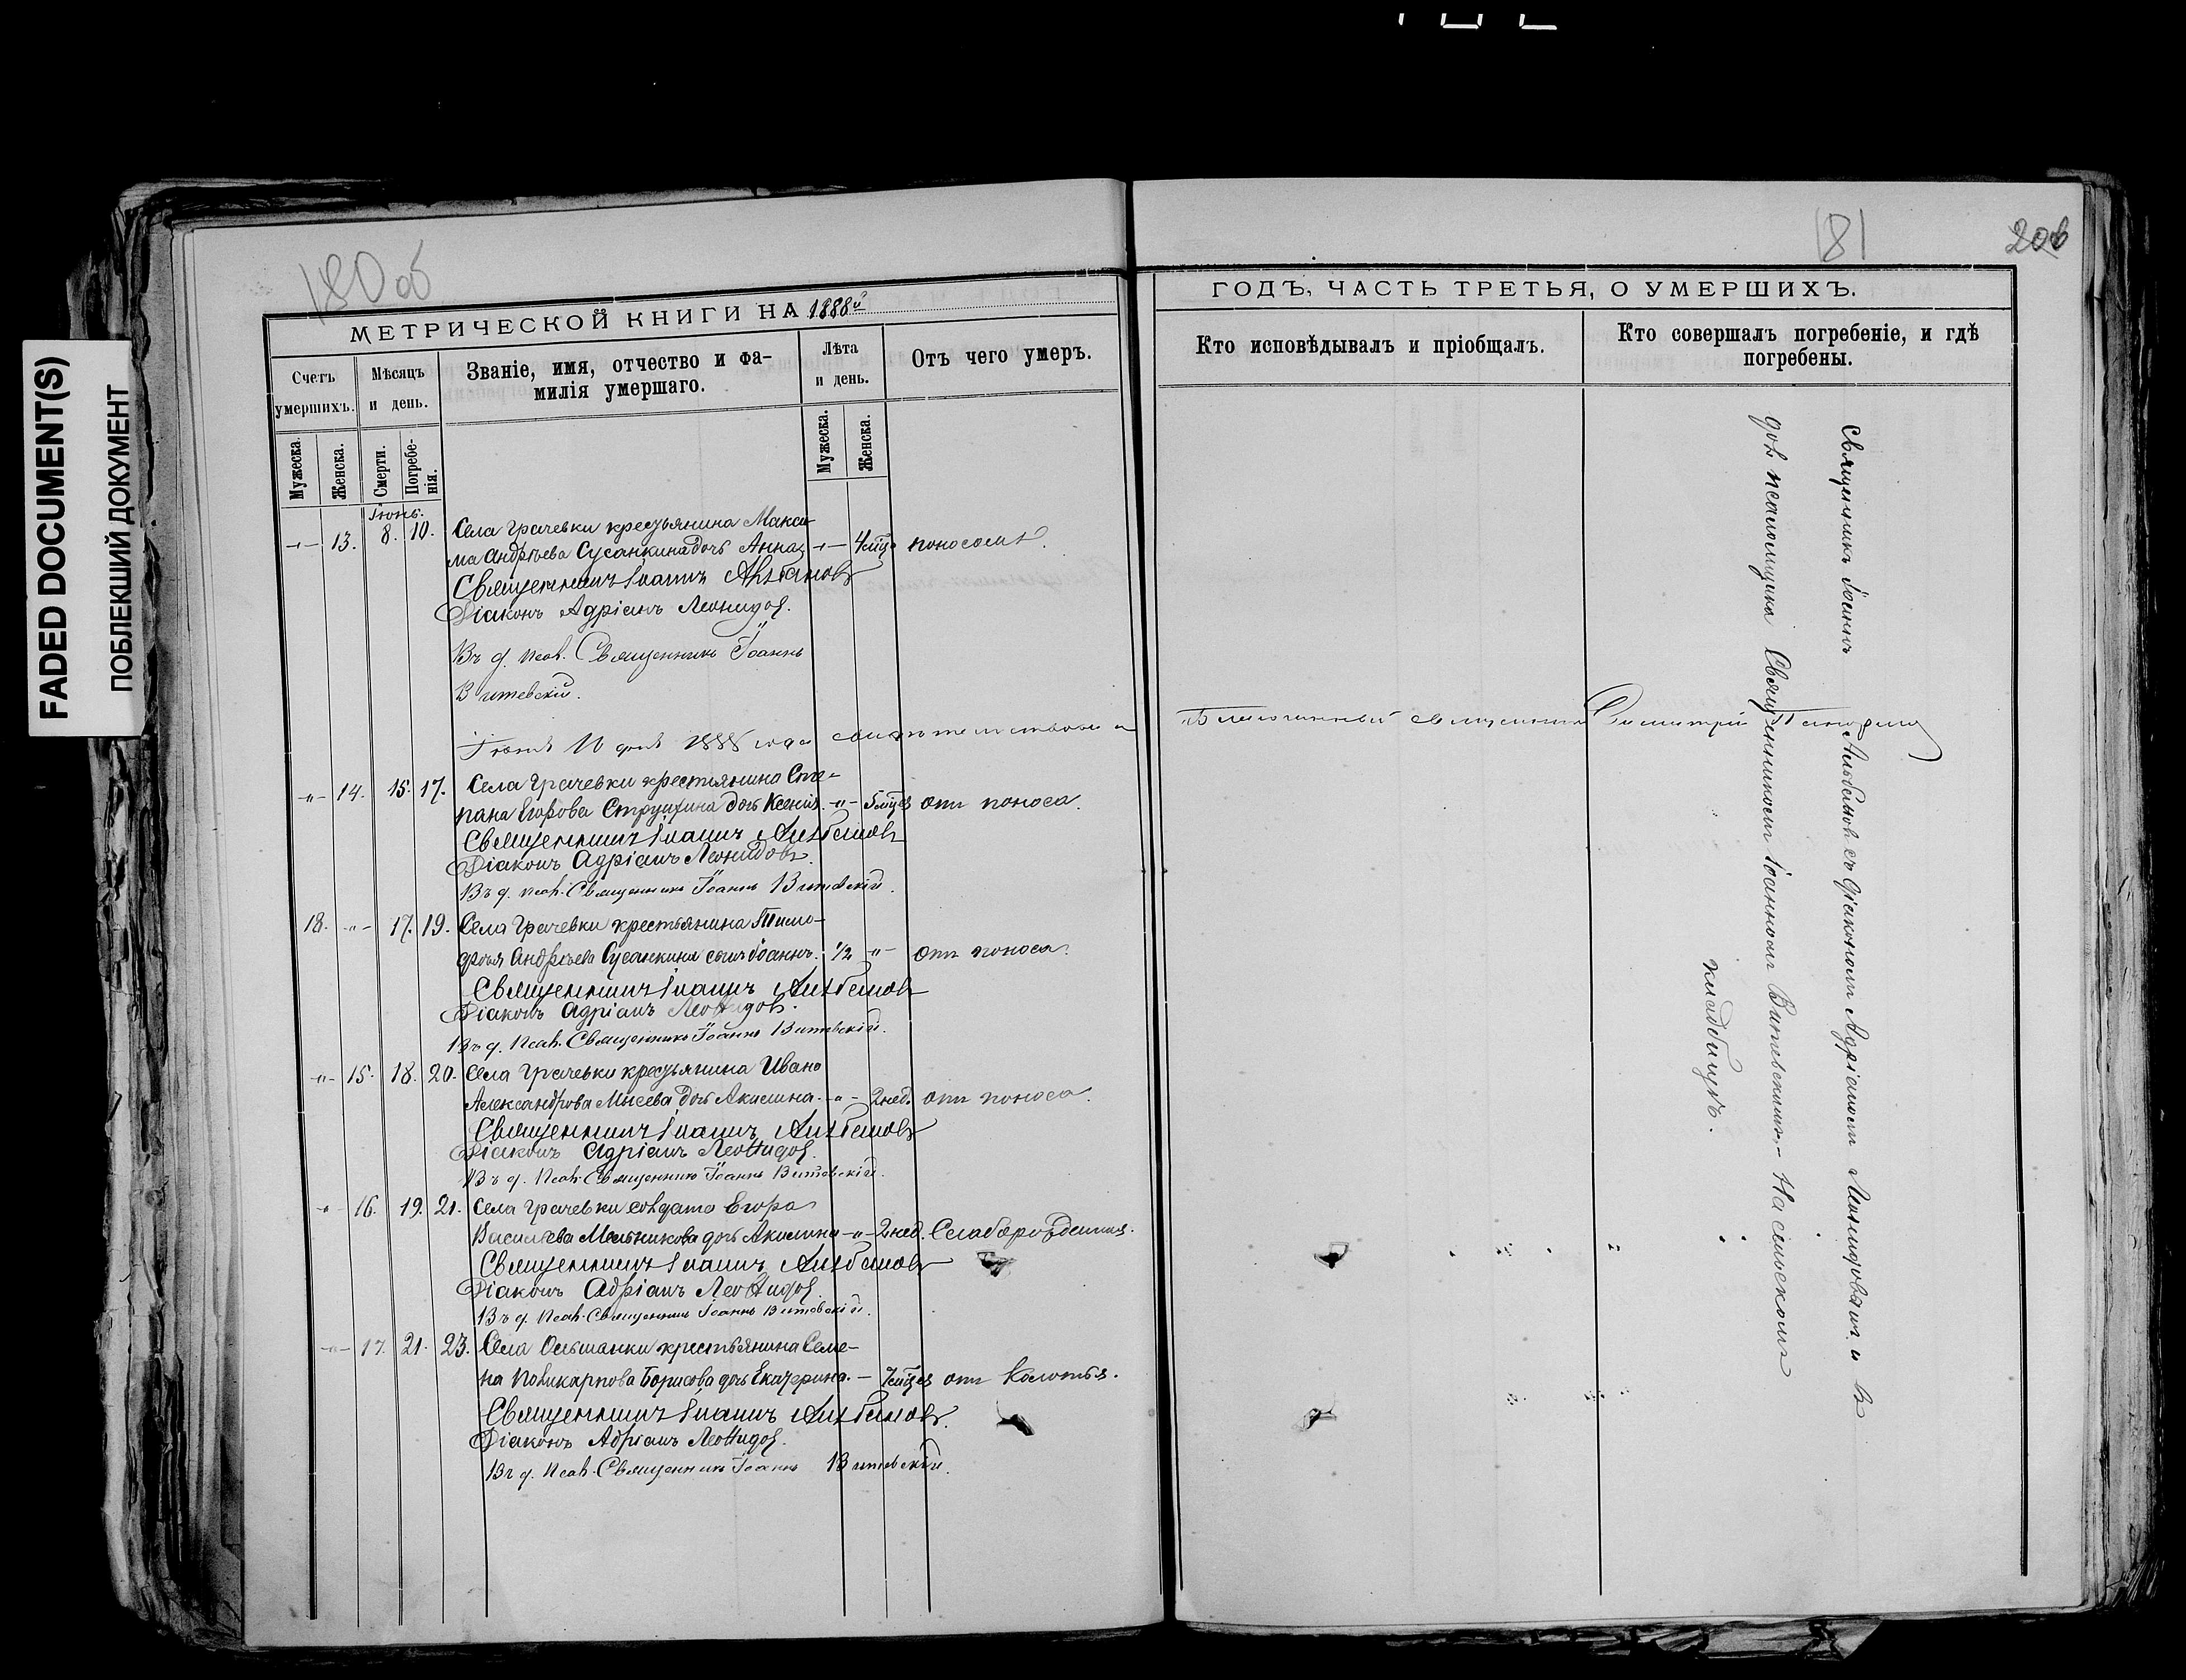 FADED DOCUMENT(S)
ПОБЛЕКШИЙ ДОКУМЕНТ
180 об
181
МЕТРИЧЕСКОЙ КНИГИ НА 1888й
ГОДЪ, ЧАСТЬ ТРЕТЬЯ, О УМЕРШИХЪ.
Счетъ умершихъ.
Мѣсяцъ и день.
Званіе, имя, отчество и фамилія умершаго.
Лѣта и день.
Отъ чего умеръ.
Кто исповѣдывалъ и пріобщалъ.
Кто совершалъ погребеніе, и гдѣ погребены.
Мужеска.
Женска.
Смерти.
Погребенія.
Мужеска.
Женска.
Іюнь.
-"- 13. 8. 10. Села Грачевки кресзьянина Макси-
ма Андрѣева Сусанкина дочь Анна -"- 4 мѣс поносомъ.
Священникъ Іоаннъ
Діаконъ Адріанъ Леонидов.
Въ д. псал. Священникъ Іоаннъ
Витевскій.
Іюня 10 дня 1888 года свидѣтельствовалъ Благочинный священникъ Димитрій
-"- 14. 15. 17. Села Грачевки крестьянина Сте-
пана Егорова дочь Ксенія. -"- 5 мѣсяц отъ поноса.
Священникъ Іоаннъ
Діаконъ Адріанъ Леонидовъ.
Въ д. псал. Священникъ Іоаннъ Витевскій.
18. -"- 17. 19. Села Грачевки крестьянина Тимо-
фѣя Андрѣева Сусанкина сынъ Іоаннъ. 1/2 -"- отъ поноса.
Священникъ Іоаннъ
Діаконъ Адріанъ Леонидов.
Въ д. псал. Священникъ Іоаннъ Витевскій.
-"- 15. 18. 20. Села Грачевки кресзьянина Ивана
Александрова дочь Акилина. -"- 2 нед. отъ поноса.
Священникъ Іоаннъ
Діаконъ Адріанъ Леонидов.
Въ д. псал. Священникъ Іоаннъ Витевскій.
-"- 16. 19. 21. Села Грачевки солдата Егора
Васильева Мельникова дочь Акилина -"- 2 нед. Слаборожденная.
Священникъ Іоаннъ
Діаконъ Адріанъ Леонидов.
Въ д. псал. Священникъ Іоаннъ Витевскій.
-"- 17. 21. 23. Села Ольшанки крестьянина Семе-
на Поликарпова Борисова дочь Екатерина. - 7 мѣсяц отъ колотья.
Священникъ Іоаннъ
Діаконъ Адріанъ Леонидов.
Въ д. псал. Священникъ Іоаннъ Витевскій.
Священникъ Іоаннъ съ діакономъ Адріаномъ Леонидовымъ и в
долж псаломщика Священникомъ Іоанномъ Витевскимъ. - На сельскомъ
кладбищѣ.